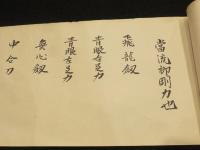 當流柳剛刀也
飛龍劔
青眼右足刀
青眼左足刀
無心劔
中合刀